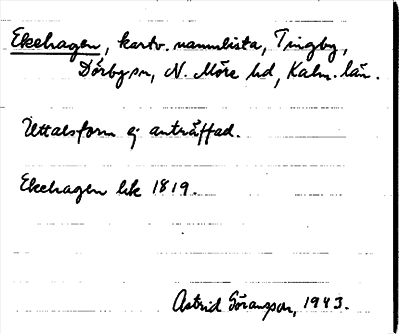 Ekehagen, kartv. namnlista, Tingby,
Dörbysn, N. Möre hd, Kalm. län.
Uttalsform ej anträffad.
Ekehagen lsk 1819.
Astrid Göransson, 1943.